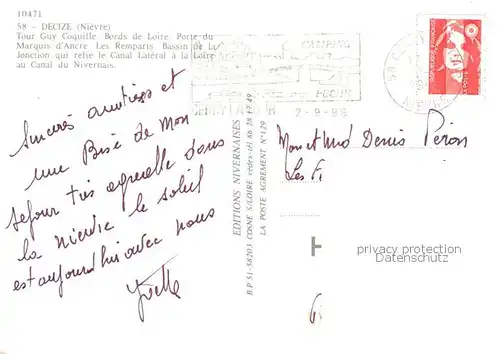 10471
58 - DECIZE (Nièvre)
Tour Guy Coquille Bords de Loire Porte du
Marquis d'Ancre Les Remparts Bassin de la
Jonction qui relie le Canal Latéral à la Loire
au Canal du Nivernais.
CAMPING
2-9-96
RÉPUBLIQUE FRANÇAISE
Sincères amitiés et
une Bise de Mon
séjour très agréable dans
la Nièvre le soleil
est aujourd'hui avec nous
Yvette
EDITIONS NIVERNAISES
B.P 51-58203 COSNE S/LOIRE cédex-tél 86 28 17 49
LA POSTE AGREMENT N°129
Mr et Md Denis Péron
Les
privacy protection
Datenschutz